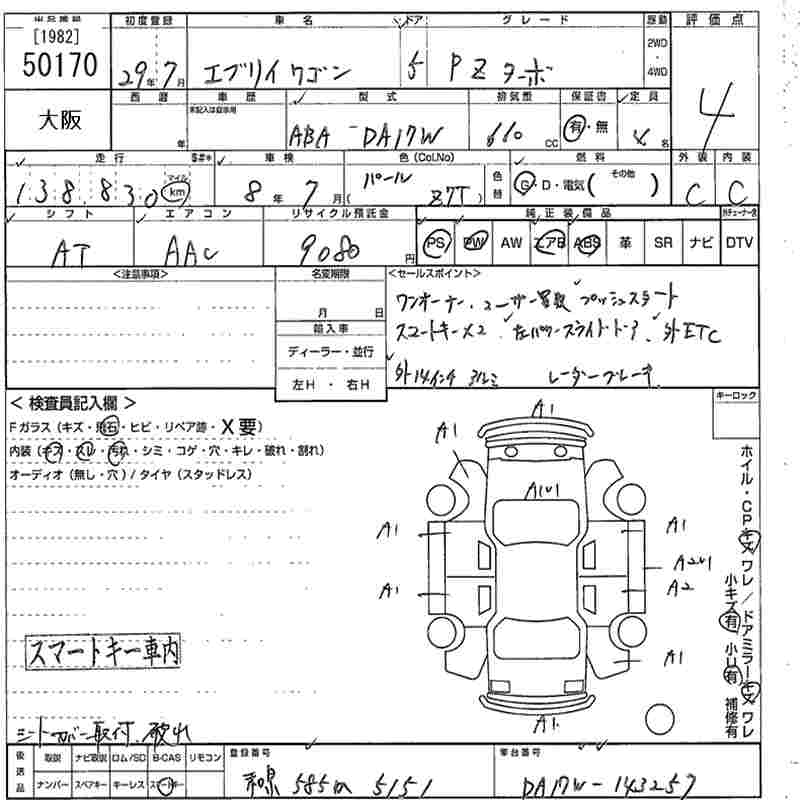 [1982]
50170
初度登録 車名 ドア グレード 原動 評価点
29年7月 エブリイワゴン 5 PZ ターボ 2WD 4WD
大阪
西暦 車歴 型式 排気量 保証書 定員
未記入は自家用
年 ABA-DA17W 660 CC 有・無 4名 4
走行 車検 色(Col.No) 燃料 外装 内装
138,830 マイル km 8年7月 パール Z7T 色替 G・D・電気( その他 ) C C
シフト エアコン リサイクル預託金 純正装備品
AT AAC 9080円 PS PW AW エアB ABS 革 SR ナビ DTV
<注意事項> 名変期限 <セールスポイント>
月 日
ワンオーナー、ユーザー買取 プッシュスタート
輸入車
スマートキー×2 左パワースライドドア 外ETC
ディーラー・並行
外14インチ アルミ レーダーブレーキ
左H・右H
<検査員記入欄> キーロック
Fガラス(キズ・飛石・ヒビ・リペア跡・X要)
内装(キズ・スレ・汚れ・シミ・コゲ・穴・キレ・破れ・割れ)
オーディオ(無し・穴)/タイヤ(スタッドレス)
A1
A1
A1U1
A1 A1
A2U1
A1 A2
A1
A1
ホイル・CPキズ ワレ/ドアミラーキズ ワレ
小キズ有 小U有 補修有
スマートキー車内
シートカバー取付 破れ
後送品 取説 ナビ取説 ロム/SD B-CAS リモコン 登録番号 車台番号
ナンバー スペアキー キーレス スマートキー 585 5151 DA17W-143257